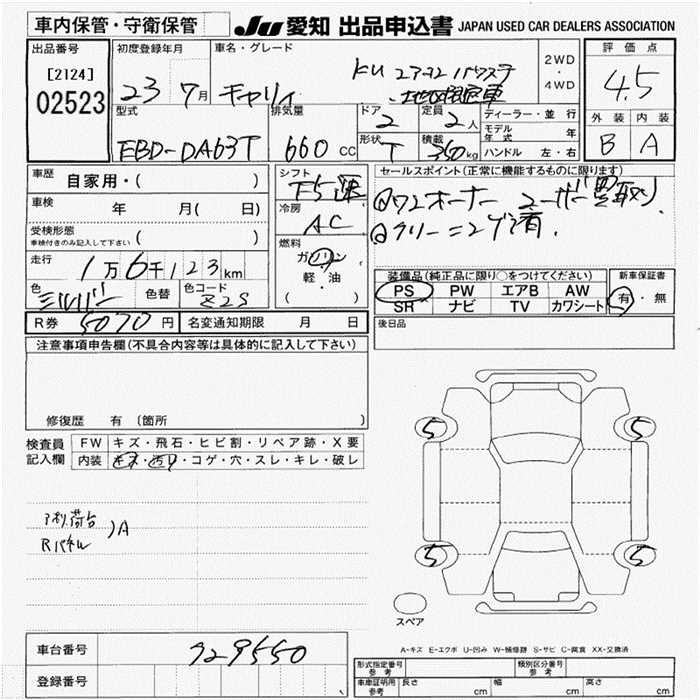 車内保管・守衛保管
JU 愛知 出品申込書 JAPAN USED CAR DEALERS ASSOCIATION
出品番号
[2124]
02523
初度登録年月
23年7月
車名・グレード
キャリィ
KU エアコン パワステ
2WD
・
4WD
評価点
4.5
型式
EBD-DA63T
排気量
660cc
ドア
2
定員
2人
形状
T
積載
350kg
ディーラー・並行
モデル年式 年
ハンドル 左・右
外装 内装
B A
車歴
自家用・( )
車検 年 月( 日)
受検形態
車検付きのみ記入して下さい ( )
走行
1万6千123km
色
シルバー
色替
色コード
Z2S
シフト
F5速
冷房
AC
燃料
ガソリン
軽・油
( )
セールスポイント(正常に機能するものに限ります)
ワンオーナー ユーザー買取り
クリーニング済
装備品(純正品に限り○をつけてください)
PS PW エアB AW
SR ナビ TV カワシート
新車保証書
有・無
R券 5070円
名変通知期限 月 日
後日品
注意事項申告欄(不具合内容等は具体的に記入して下さい)
修復歴 有 (箇所 )
検査員
記入欄
FW キズ・飛石・ヒビ割・リペア跡・X要
内装 ・コゲ・穴・スレ・キレ・破レ
荷台
Rパネル
)A
5 5
5 5
スペア
A-キズ E-エクボ U-凹み W-補修跡 S-サビ C-腐食 XX-交換済
車台番号
729550
登録番号
形式指定番号
参考
類別区分番号
参考
車庫証明用
参考
長さ cm
幅 cm
高さ cm